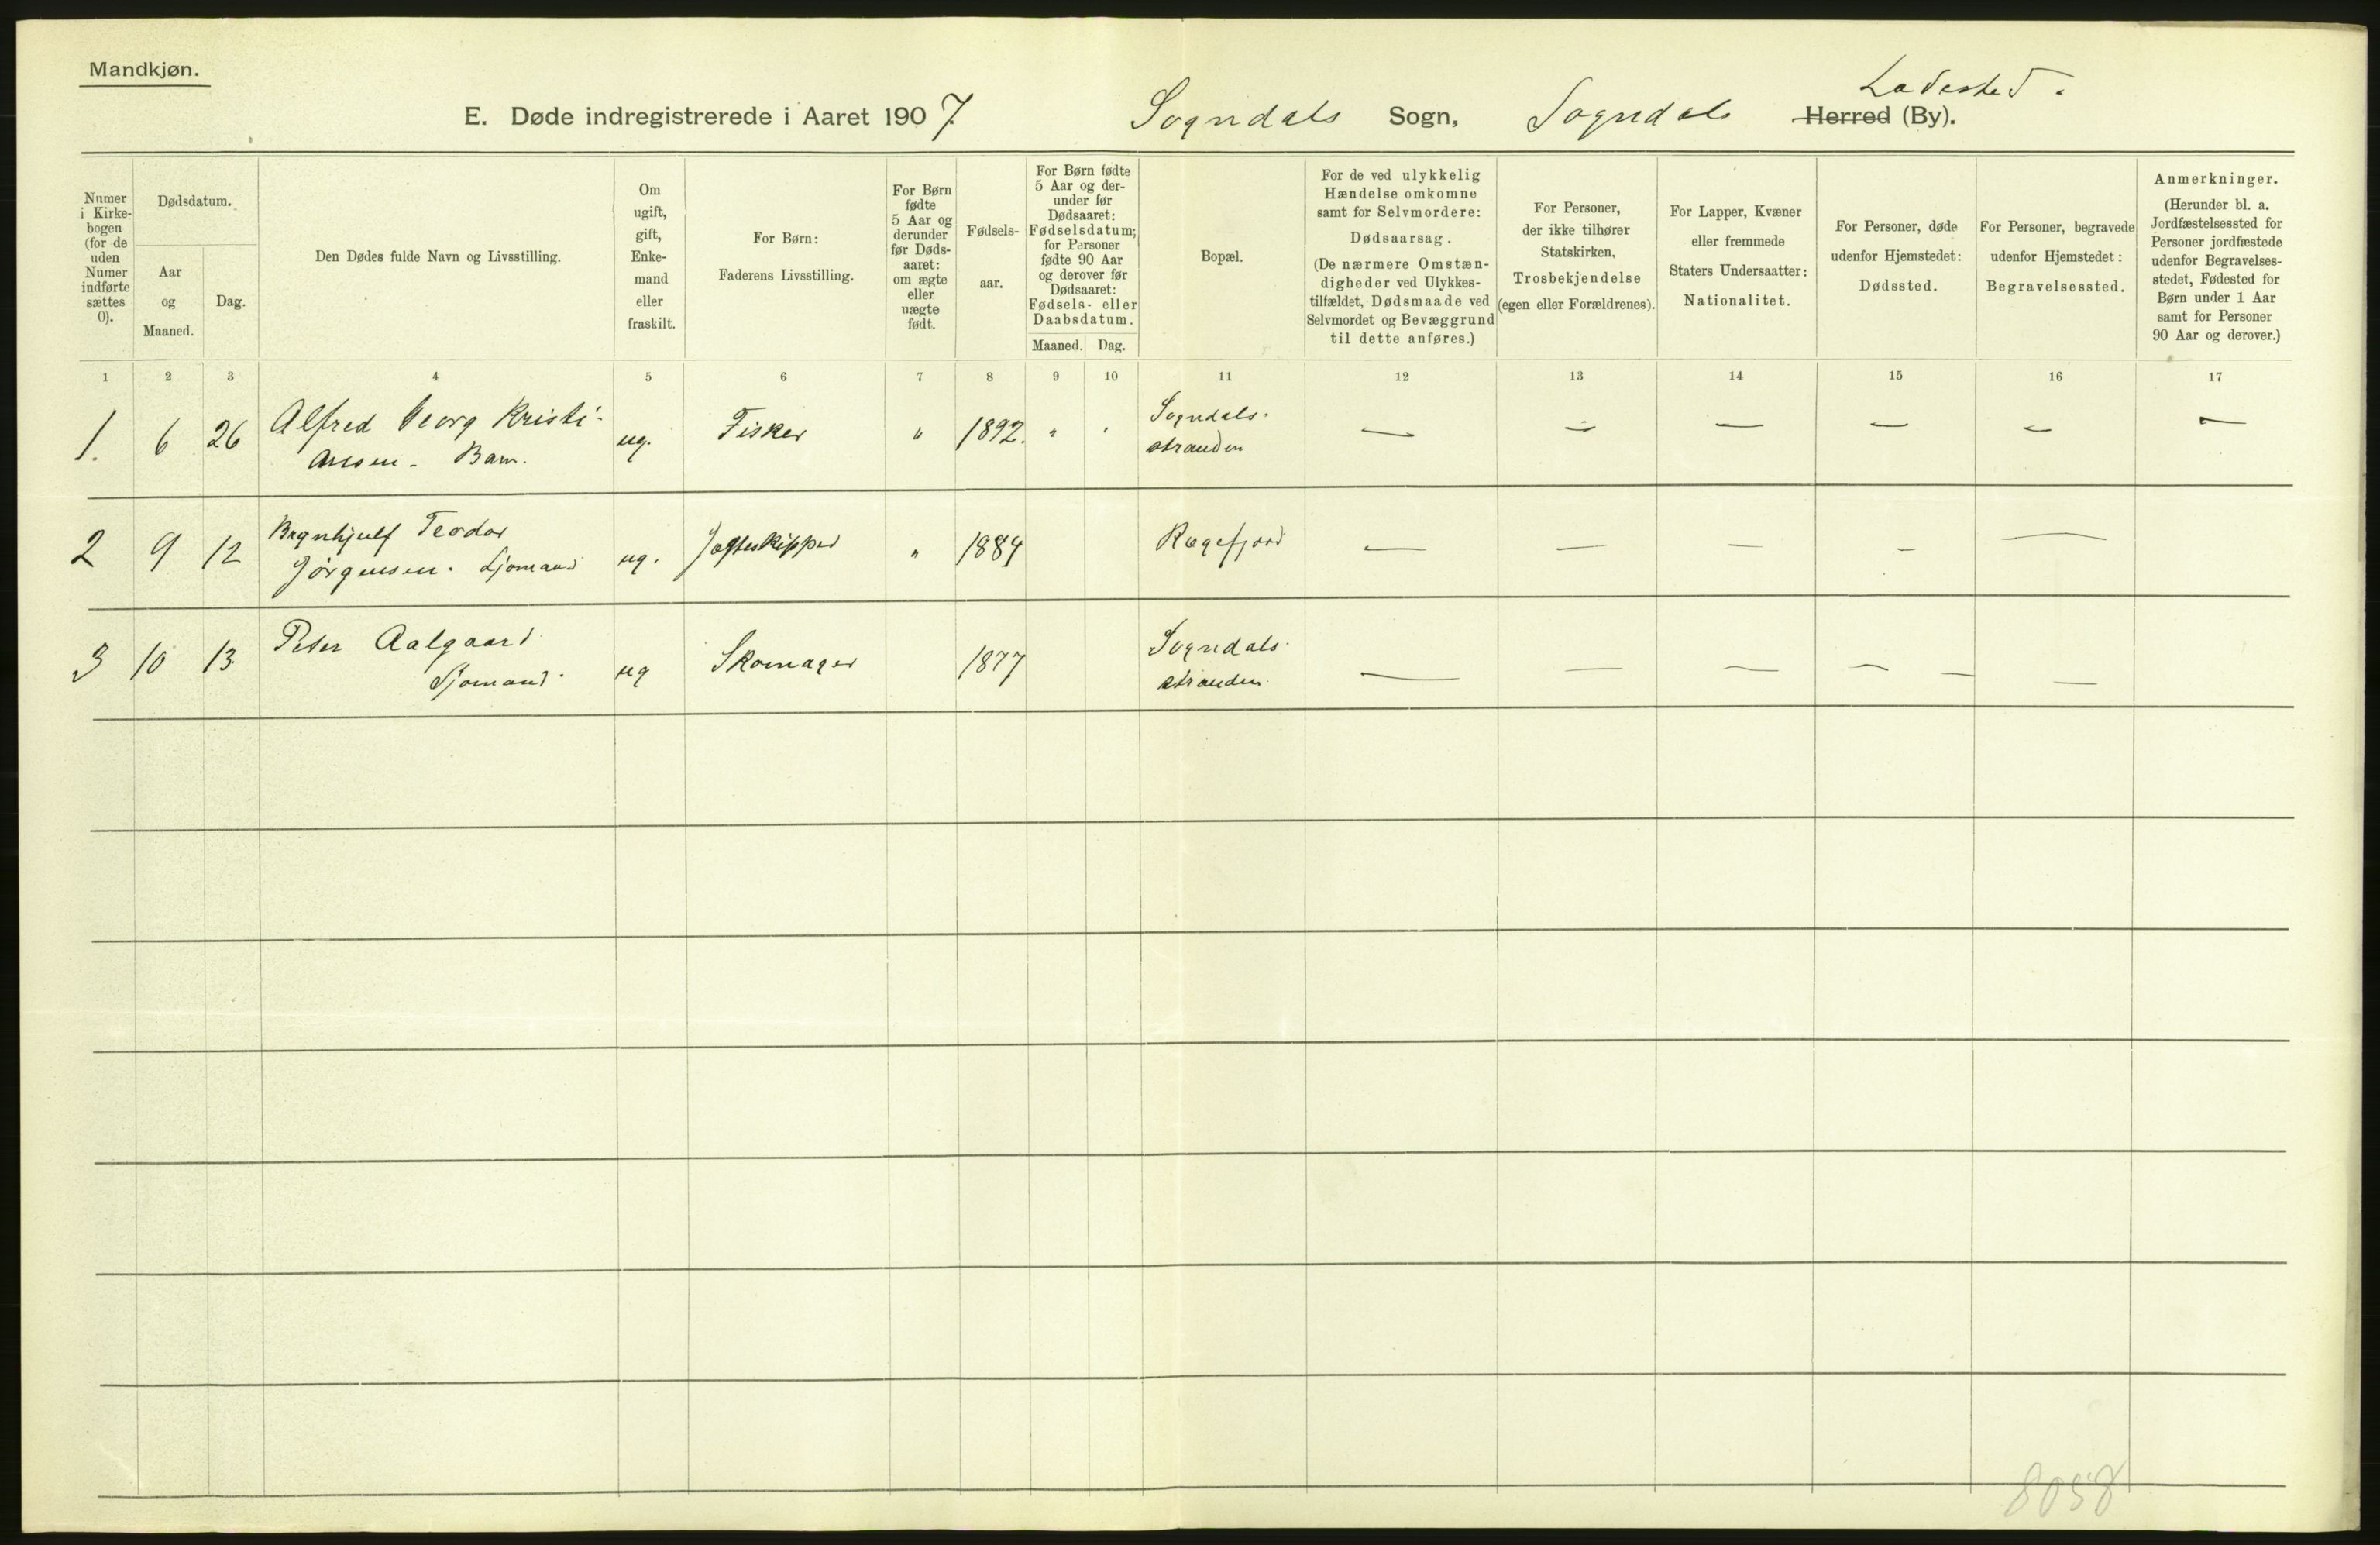 Mandkjøn.
E. Døde indregistrerede i Aaret 1907. Sogndals Sogn, Sogndals Ladested. Herred (By).
Numer i Kirkebogen (for de uden Numer indførte sættes 0).
Dødsdatum.
Aar og Maaned.
Dag.
Den Dødes fulde Navn og Livsstilling.
Om ugift, gift, Enkemand eller fraskilt.
For Børn: Faderens Livsstilling.
For Børn fødte 5 Aar og derunder før Dødsaaret: om ægte eller uægte født.
Fødselsaar.
For Børn fødte 5 Aar og derunder før Dødsaaret: Fødselsdatum; for Personer fødte 90 Aar og derover før Dødsaaret: Fødsels- eller Daabsdatum.
Maaned. Dag.
Bopæl.
For de ved ulykkelig Hændelse omkomne samt for Selvmordere: Dødsaarsag. (De nærmere Omstændigheder ved Ulykkestilfældet, Dødsmaade ved Selvmordet og Bevæggrund til dette anføres.)
For Personer, der ikke tilhører Statskirken, Trosbekjendelse (egen eller Forældrenes).
For Lapper, Kvæner eller fremmede Staters Undersaatter: Nationalitet.
For Personer, døde udenfor Hjemstedet: Dødssted.
For Personer, begravede udenfor Hjemstedet: Begravelsessted.
Anmerkninger. (Herunder bl. a. Jordfæstelsessted for Personer jordfæstede udenfor Begravelsesstedet, Fødested for Børn under 1 Aar samt for Personer 90 Aar og derover.)
1 2 3 4 5 6 7 8 9 10 11 12 13 14 15 16 17
1. 6 26 Alfred Georg Kristi- ug. Fisker " 1892. " " Sogndals- — — — — — —
ansen - Barn. stranden
2 9 12 Brynhjulf Teodor ug. Jagteskipper " 1889 Rægefjord — — — — —
Jørgensen. Sjømand
3 10 13. Peter Aalgaard ug Skomager 1877 Sogndals- — — — — — —
Sjømand. stranden.
8058